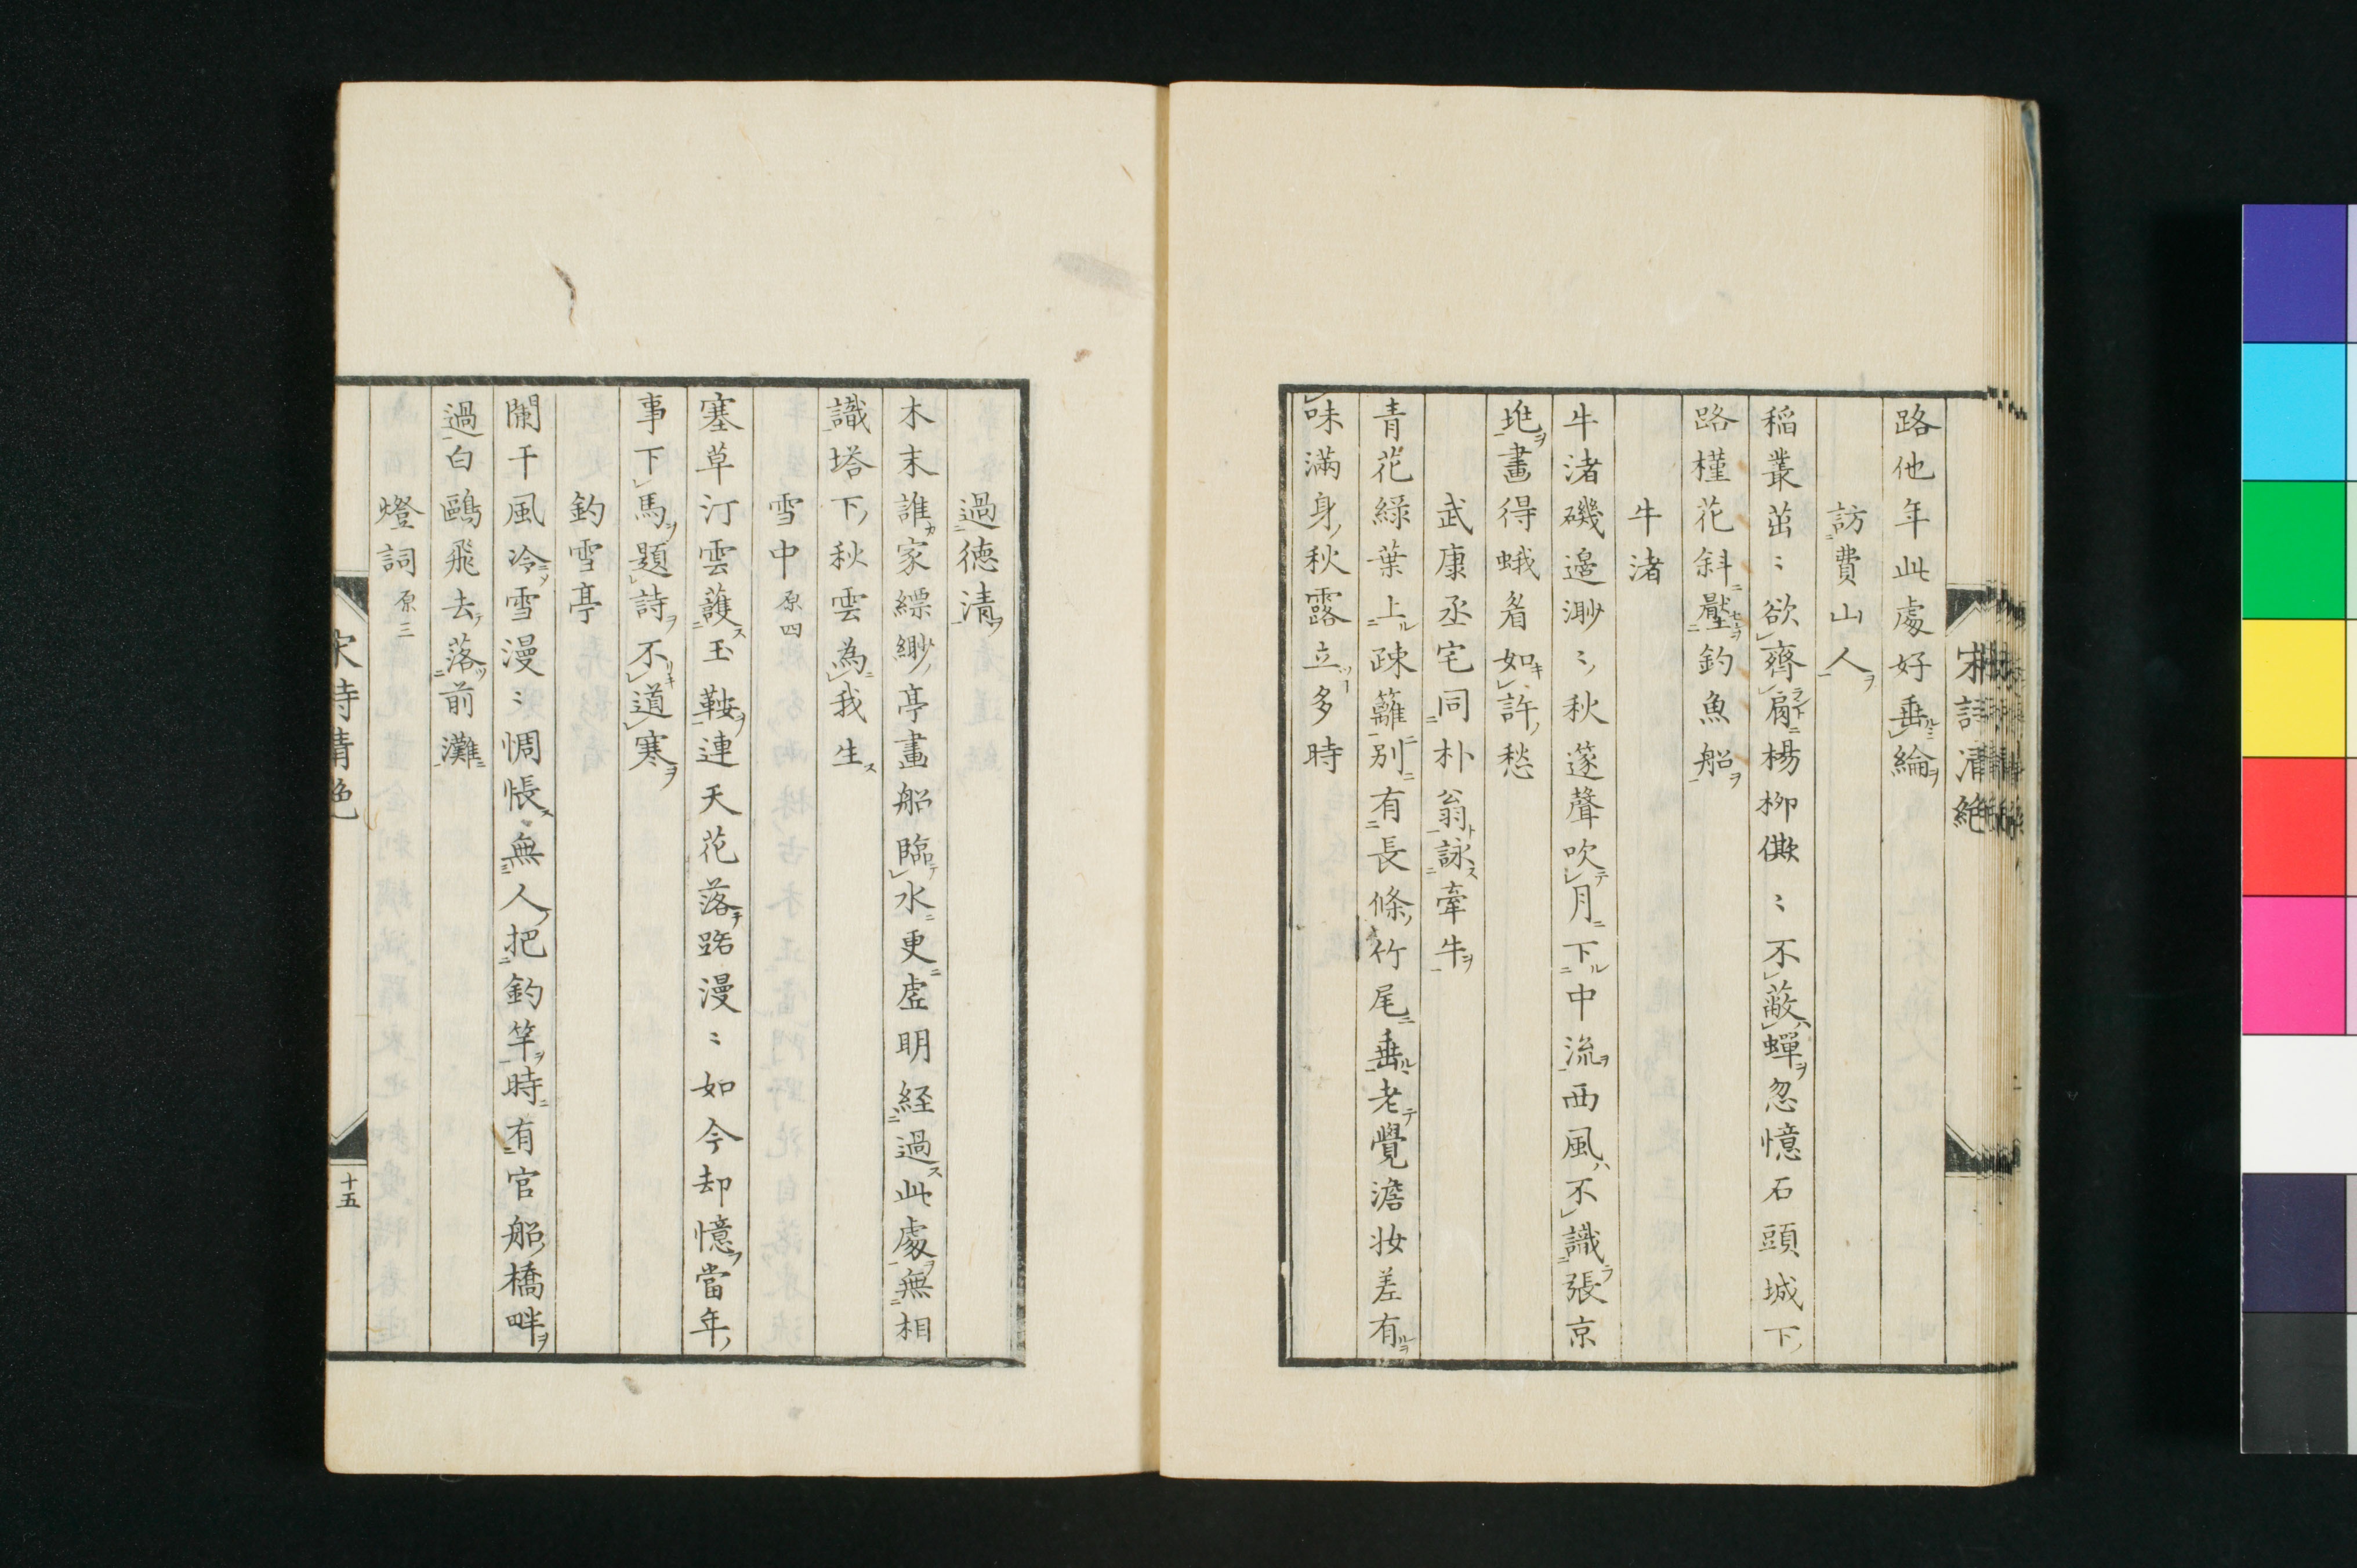 宋詩清絶
路他年此處好垂綸
訪費山人
稲叢茁〻欲齊肩楊柳僛〻不蔽蟬忽憶石頭城下
路槿花斜壓釣魚船
牛渚
牛渚磯邉渺〻秋篴聲吹月下中流西風不識張京
兆畫得蛾眉如許愁
武康丞宅同朴翁詠牽牛
青花緑葉上疎籬别有長條竹尾垂老覺澹妝差有
味滿身秋露立多時
過徳清
木末誰家縹緲亭畫船臨水更虚明経過此處無相
識塔下秋雲為我生
雪中原四
塞草汀雲護玉鞍連天花落路漫〻如今却憶當年
事下馬題詩不道寒
釣雪亭
闌干風冷雪漫〻惆悵無人把釣竿時有官船橋畔
過白鷗飛去落前灘
燈詞原三
宋詩清絶
十五